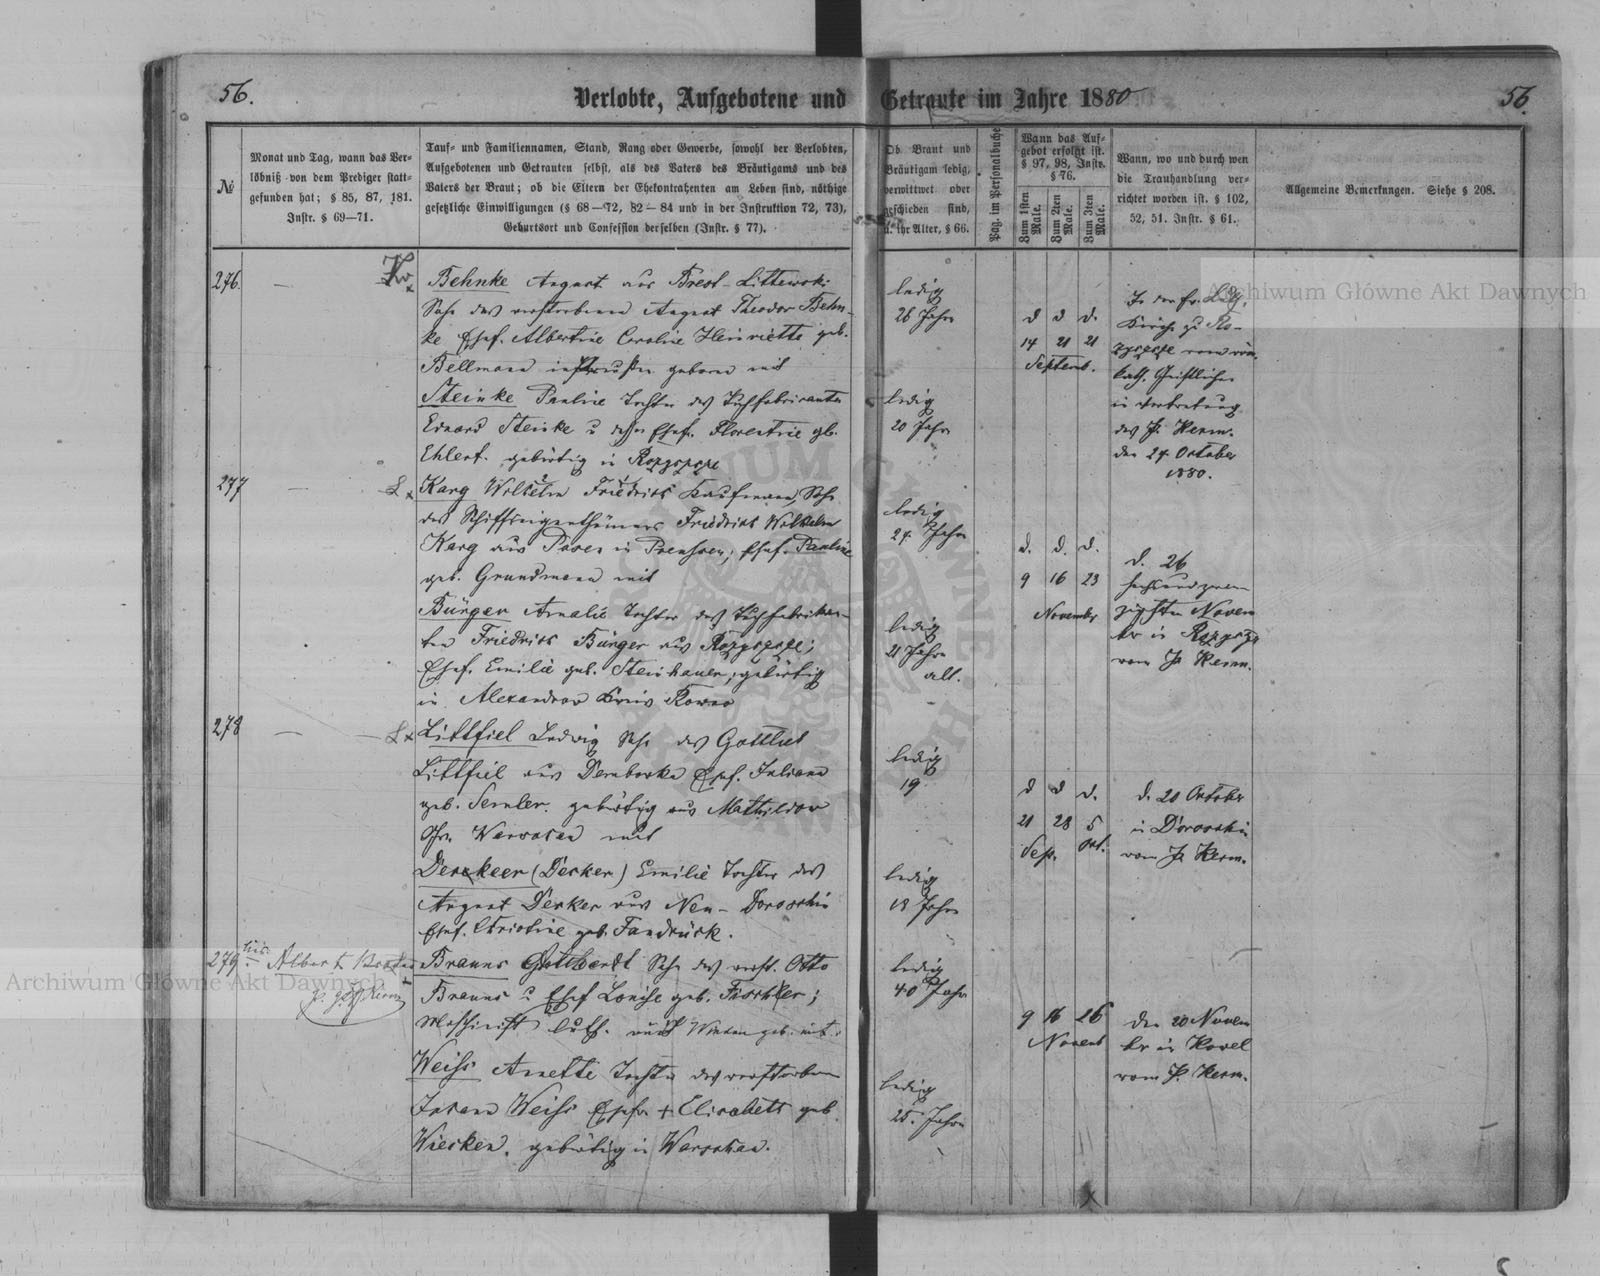 56.
Verlobte, Aufgebotene und Getraute im Jahre 1880
56.
№
Monat und Tag, wann das Ver-
löbniß von dem Prediger statt-
gefunden hat; § 85, 87, 181.
Instr. § 69—71.
Tauf- und Familiennamen, Stand, Rang oder Gewerbe, sowohl der Verlobten,
Aufgebotenen und Getrauten selbst, als des Vaters des Bräutigams und des
Vaters der Braut; ob die Eltern der Ehekontrahenten am Leben sind, nöthige
gesetzliche Einwilligungen (§ 68—72, 82—84 und in der Instruktion 72, 73),
Geburtsort und Confession derselben (Instr. § 77).
Ob Braut und
Bräutigam ledig,
verwittwet oder
geschieden sind,
u. ihr Alter, § 66.
Pag. im Personalbuche
Wann das Auf-
gebot erfolgt ist.
§ 97, 98, Instr.
§ 76.
Zum 1sten Male.
Zum 2ten Male.
Zum 3ten Male.
Wann, wo und durch wen
die Trauhandlung ver-
richtet worden ist. § 102,
52, 51. Instr. § 61.
Allgemeine Bemerkungen. Siehe § 208.
276.
Behnke August aus Brest-Littewski
Sohn des verstorbenen August Theodor Behn-
ke Ehef. Albertine Caroline Henriette geb.
Bellmann in Preußen geboren mit
Steinke Pauline Tochter des Tuchfabrikanten
Eduard Steinke u dessen Ehef. Florentine gb.
Ehlert. gebürtig in Rozyszcze
ledig
26 Jahr
ledig
20 Jahr
d d d.
14 21 21
Septemb.
In der ev. Luth.
Kirche zu Ro-
zyszcze vom röm.
kath. Geistlichen
in Vertretung
des P. Kerm.
den 24 October
1880.
277
Karg Wilhelm Friedrich Kaufmann, Sohn
des Schiffseigenthümers Friedrich Wilhelm
Karg aus Posen in Preussen; Ehef. Pauline
geb. Grundmann mit
Bürger Amalie Tochter des Tuchfabrikan-
ten Friedrich Bürger aus Rozyszcze;
Ehef. Emilie geb. Steinhauer, gebürtig
in Alexandrow Kreis Rowno
ledig
24 Jahr
ledig
21 Jahr
alt.
d. d. d.
9 16 23
November
d. 26
sechsundzwan
zigsten Novem
ber in Rozyszcze
vom P. Kerm.
278
Littfiel Ludwig Sohn des Gottlieb
Littfiel aus Dembowka Ehef. Juliana
geb. Semler. gebürtig aus Mathildow
Gv. Warschau mit
Derkeer (Decker) Emilie Tochter des
August Derker aus Neu-Doroschin
Ehef. Christine geb. Fandrück.
ledig
19
ledig
18 Jahr
d d d.
21 28 5
Sep. Oct.
d. 20 October
in Doroschin
vom P. Kerm.
279
Albert
Brauns Gotthardt Sohn des verst. Otto
Brauns u Ehef Louise geb. Fischer;
Maschinist luth. geb. mit
Weiss Anette Tochter des verstorben
Johann Weiss Ehefr + Elisabeth geb
Wiecken. gebürtig in Warschau.
ledig
40 Jahr
ledig
25 Jahr
9 16 26
Novemb
den 20 Novem
ber in Kovel
vom P. Kerm.
Archiwum Główne Akt Dawnych
Archiwum Główne Akt Dawnych